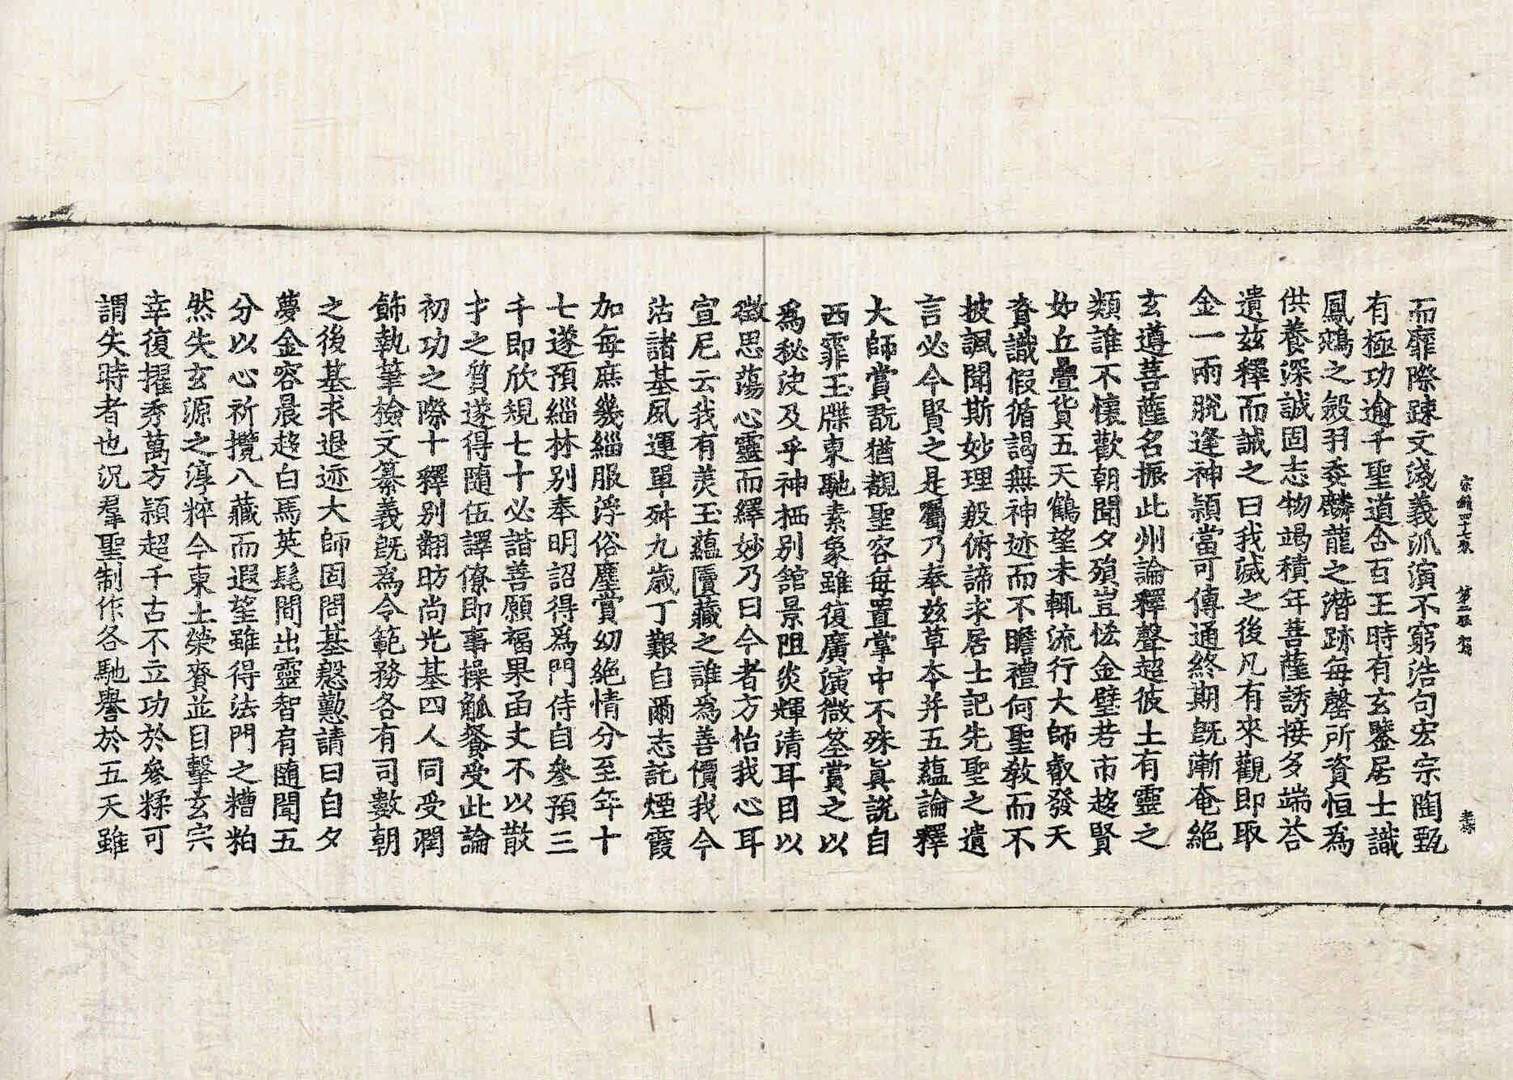 宗鏡四十七卷　第二張　宿
而靡際疎文淺義派演不窮浩句宏宗陶甄
有極功逾千聖道合百王時有玄鑒居士識
鳳鵷之㲉羽委麟龍之潛跡每罄所資恒爲
供養深誠固志物竭積年菩薩誘接多端荅
遺兹釋而誡之曰我滅之後凡有來觀即取
金一兩脫逢神穎當可傳通終期旣漸奄絕
玄遵菩薩名振此州論釋聲超彼土有靈之
類誰不懷歡朝聞夕殞豈恡金璧若市趍賢
如丘疊貨五天鶴望未輒流行大師叡發天
資識假循謁無神迹而不瞻禮何聖教而不
披諷聞斯妙理殷俯諦求居士記先聖之遺
言必今賢之是屬乃奉兹草本并五蘊論釋
大師賞翫猶覩聖容每置掌中不殊眞説自
西霏玉牒東馳素象雖復廣演微筌賞之以
爲秘決及乎神栖别館景阻炎輝清耳目以
徵思蕩心靈而繹妙乃曰今者方怡我心耳
宣尼云我有美玉蘊匵藏之誰為善價我今
沽諸基夙運單舛九歲丁艱自爾志託煙霞
加每庶幾緇服浮俗塵賞幼絕情分至年十
七遂預緇林别奉明詔得爲門侍自參預三
千即欣規七十必諧善願福果函丈不以散
才之質遂得隨伍譯僚即事操觚餐受此論
初功之際十釋别翻昉尚光基四人同受潤
飾執筆撿文纂義旣爲令範務各有司數朝
之後基求退迹大師固問基懇懃請曰自夕
夢金容晨趍白馬英髦間出靈智肩隨聞五
分以心祈攬八藏而遐望雖得法門之糟粕
然失玄源之淳粹今東土榮賚並目擊玄宗
幸復擢秀萬方穎超千古不立功於參糅可
謂失時者也况羣聖制作各馳譽於五天雖